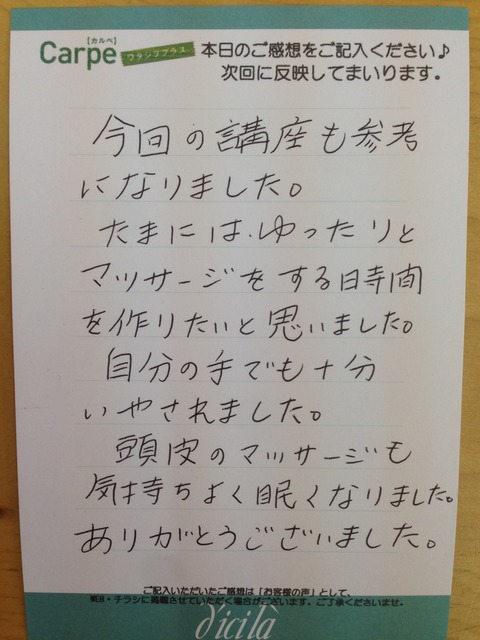 【カルペ】
Carpe ワラシププラス 本日のご感想をご記入ください♪
次回に反映してまいります。
今回の講座も参考
になりました。
たまには、ゆったりと
マッサージをする時間
を作りたいと思いました。
自分の手でも十分
いやされました。
頭皮のマッサージも
気持ちよく眠くなりました。
ありがとうございました。
ご記入いただいたご感想は「お客様の声」として、
・チラシに掲載させていただく場合がございます。ご了承くださいませ。
dicila